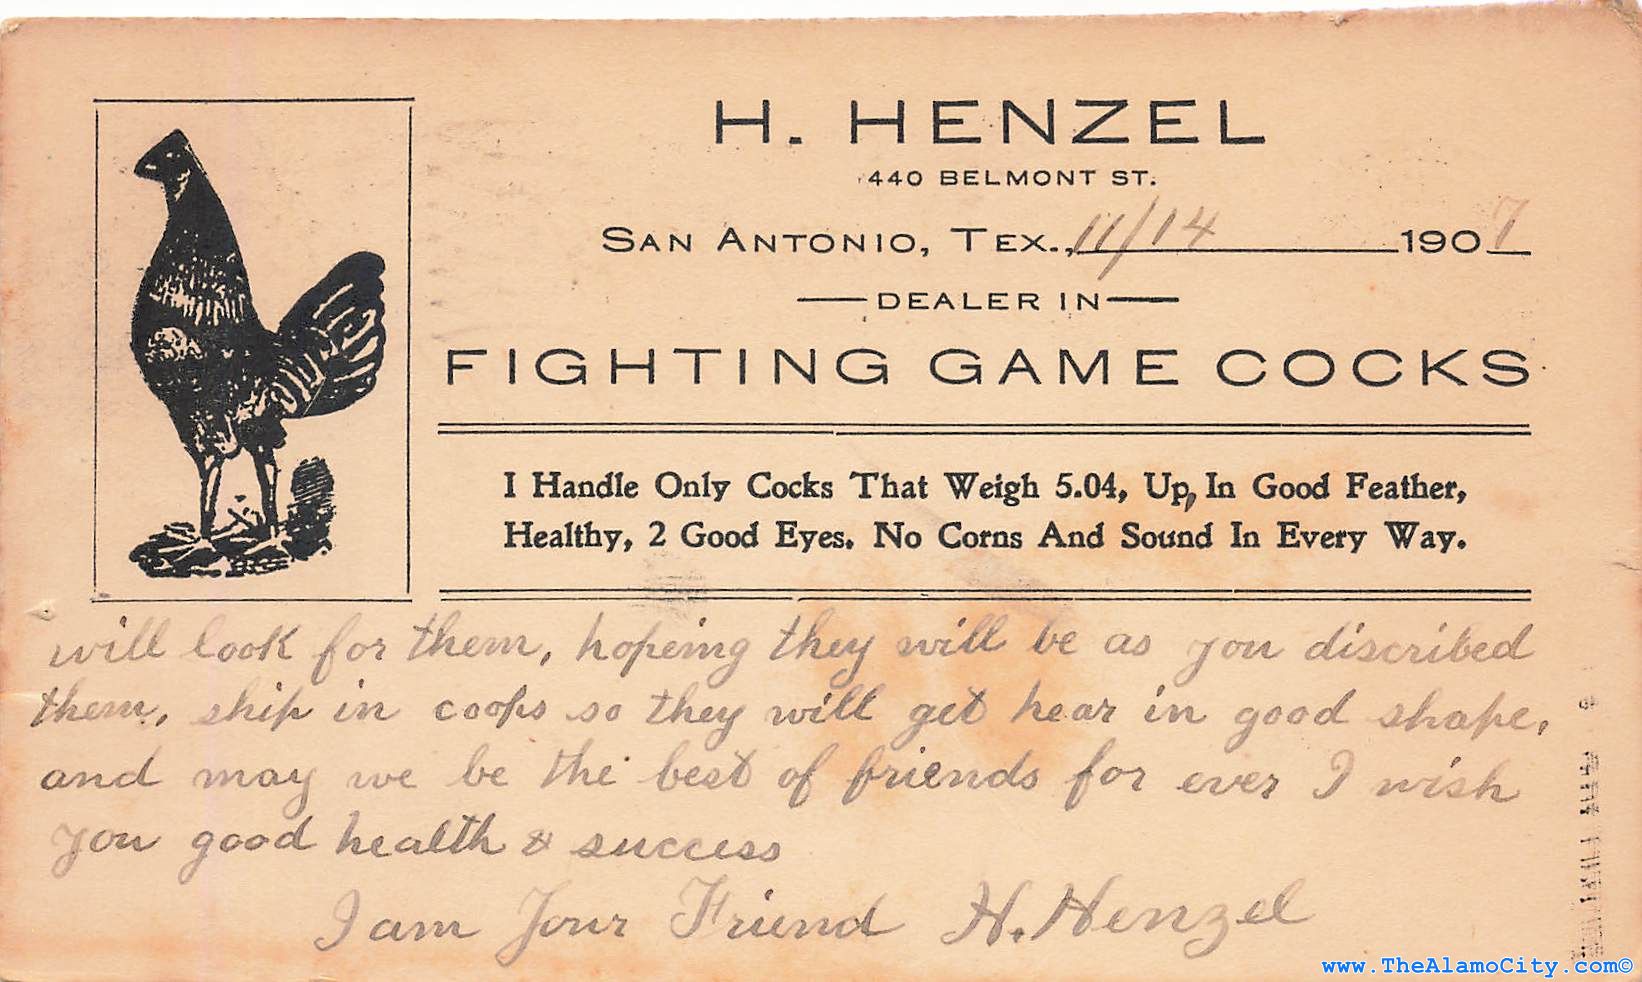 H. HENZEL
440 BELMONT ST.
SAN ANTONIO, TEX., 11/14 1907
DEALER IN
FIGHTING GAME COCKS
I Handle Only Cocks That Weigh 5.04, Up, In Good Feather,
Healthy, 2 Good Eyes. No Corns And Sound In Every Way.
will look for them, hopeing they will be as you discribed
them, ship in coops so they will get hear in good shape,
and may we be the best of friends for ever I wish
you good health & success
I am Your Friend H. Henzel
www.TheAlamoCity.com©